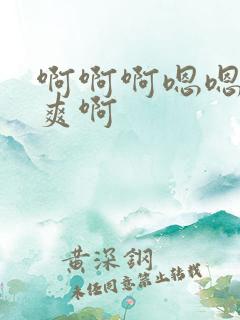 啊啊啊嗯嗯
爽啊
黄深钢
未经同意禁止转载